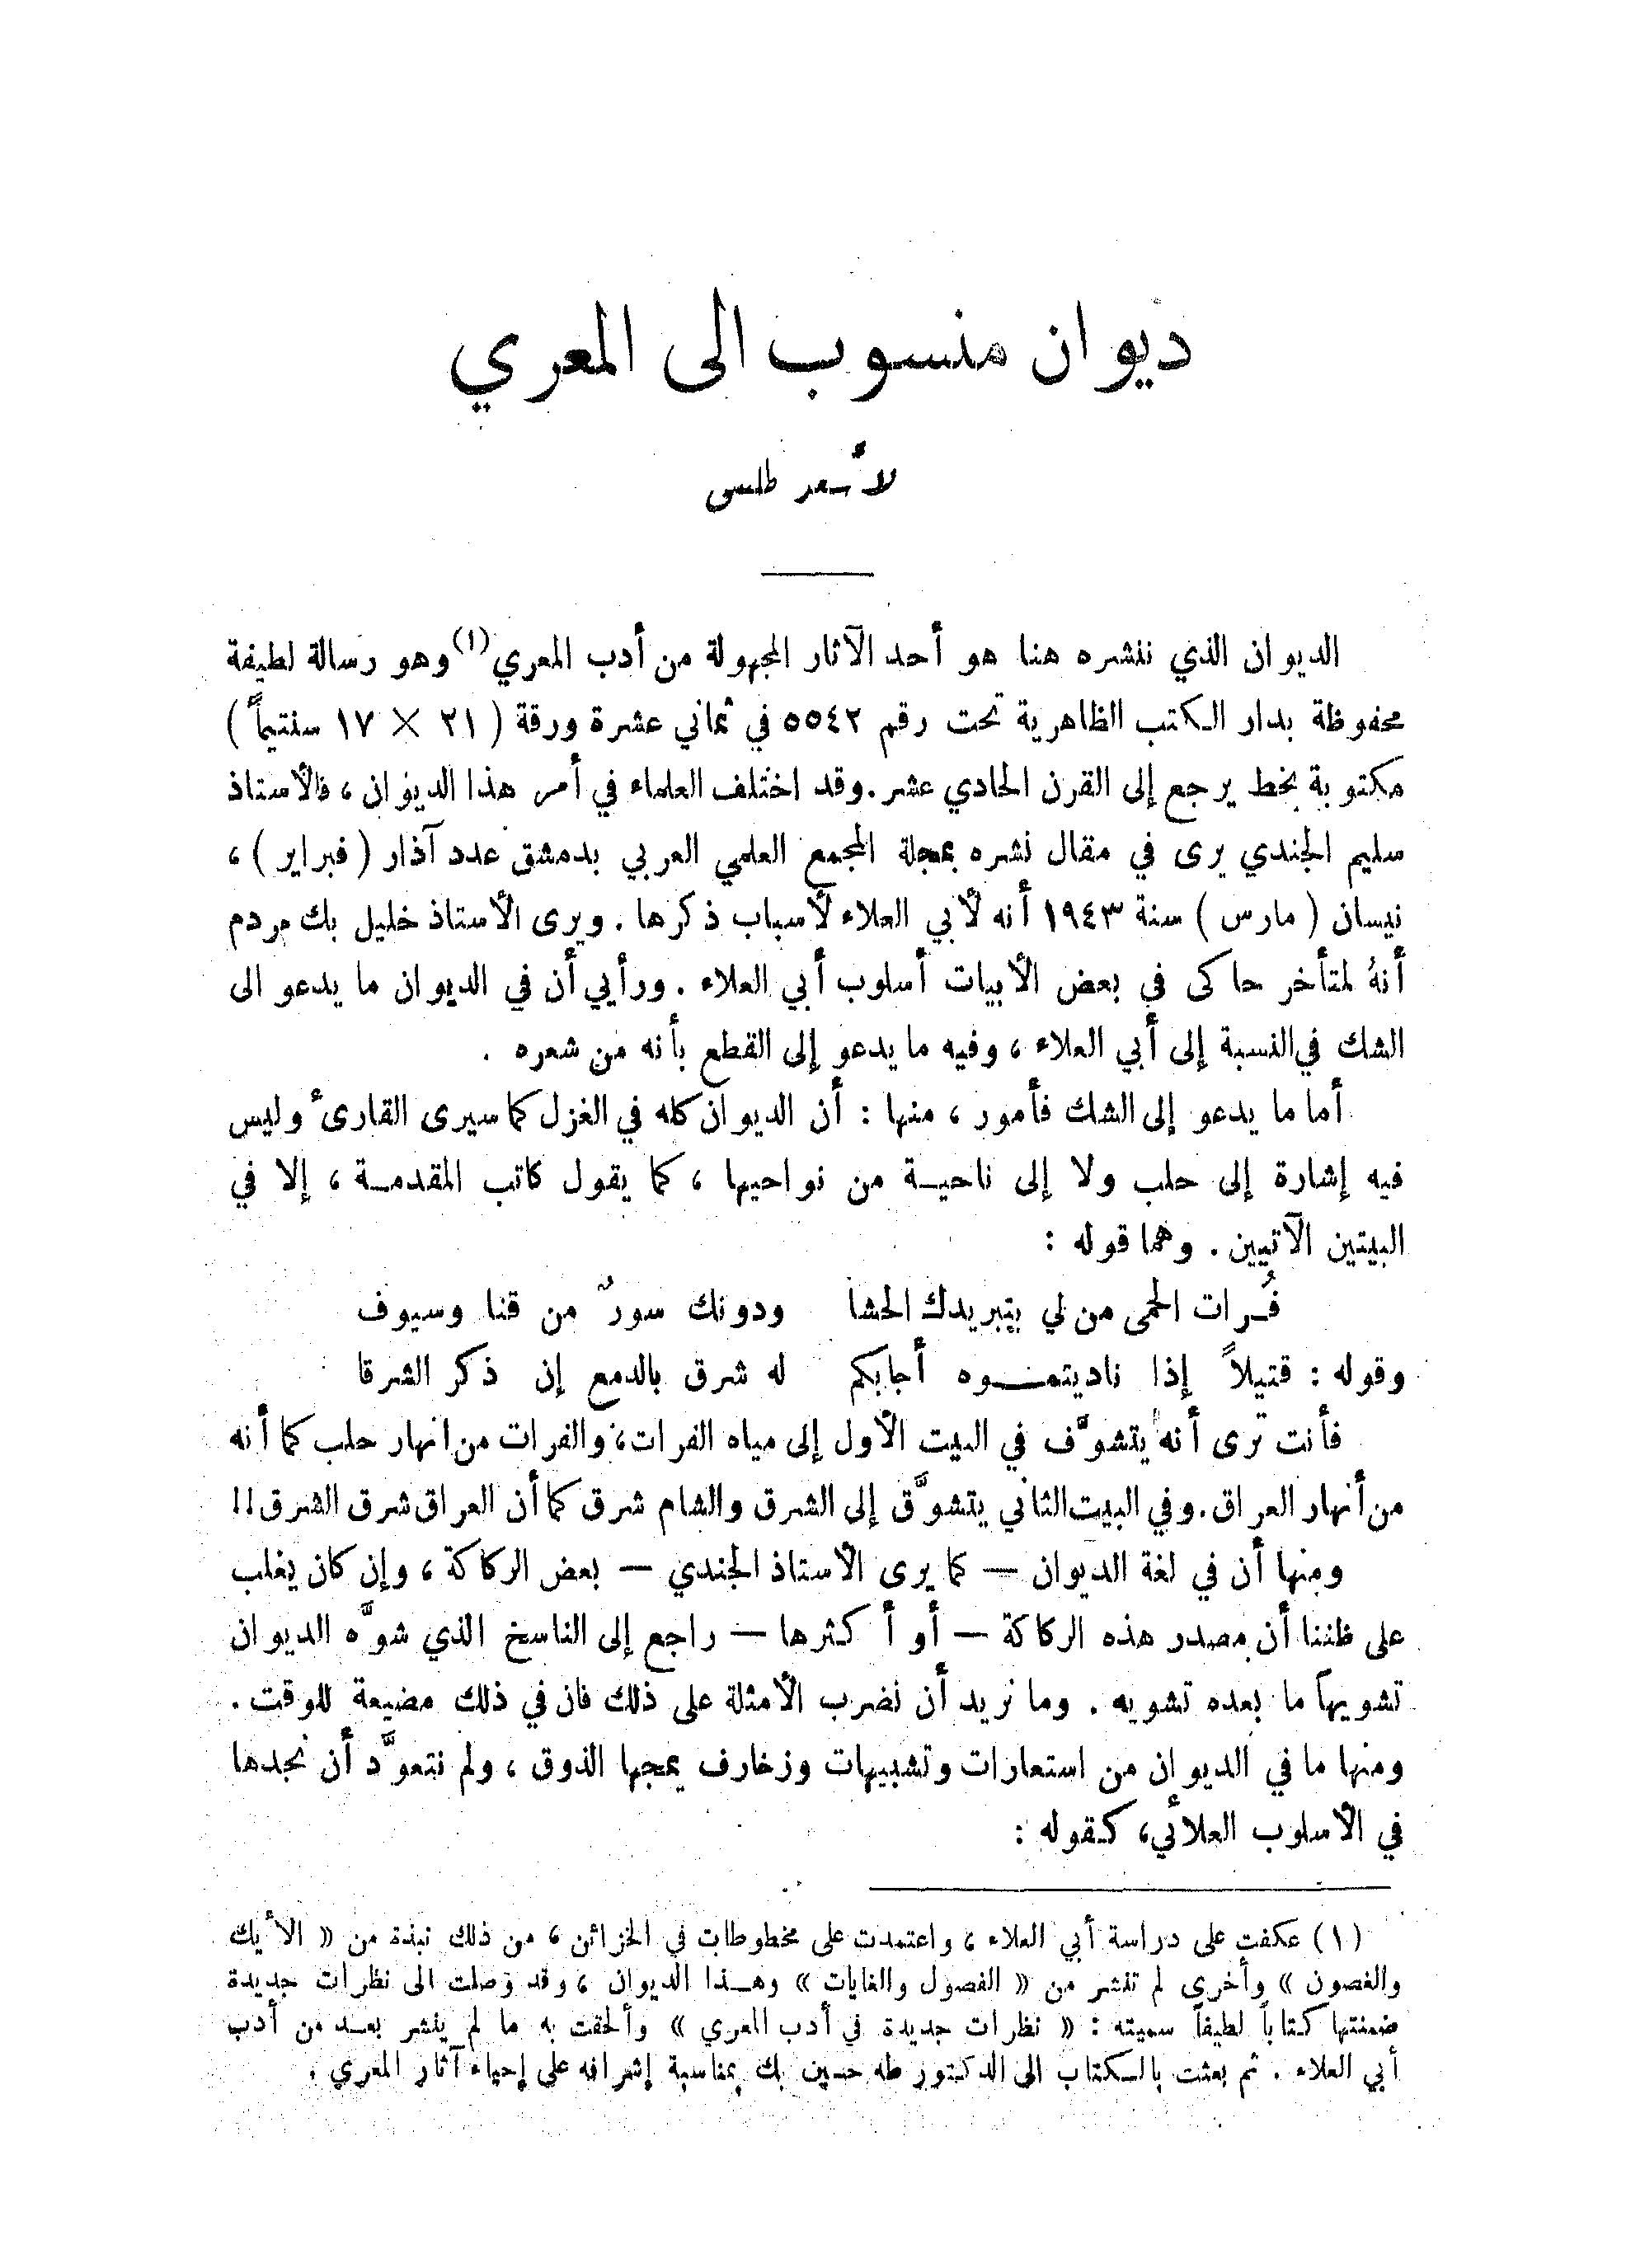 ديوان منسوب الى المعري
لأسعد طلس
الديوان الذي ننشره هنا هو أحد الآثار المجهولة من أدب المعري(١) وهو رسالة لطيفة
محفوظة بدار الكتب الظاهرية تحت رقم ٥٥٤٢ في ثماني عشرة ورقة ( ٢١ × ١٧ سنتيماً )
مكتوبة بخط يرجع إلى القرن الحادي عشر . وقد اختلف العلماء في أمر هذا الديوان ، فالأستاذ
سليم الجندي يرى في مقال نشره بمجلة المجمع العلمي العربي بدمشق عدد آذار ( فبراير ) ،
نيسان ( مارس ) سنة ١٩٤٣ أنه لأبي العلاء لأسباب ذكرها . ويرى الأستاذ خليل بك مردم
أنهُ لمتأخر حاكى في بعض الأبيات أسلوب أبي العلاء . ورأيي أن في الديوان ما يدعو الى
الشك في النسبة إلى أبي العلاء ، وفيه ما يدعو إلى القطع بأنه من شعره .
أما ما يدعو إلى الشك فأمور ، منها : أن الديوان كله في الغزل كما سيرى القارئ وليس
فيه إشارة إلى حلب ولا إلى ناحيـة من نواحيها ، كما يقول كاتب المقدمـة ، إلا في
البيتين الآتيين . وهما قوله :
فُـرات الحمى من لي بتبريدك الحشا ودونك سورٌ من قنا وسيوف
وقوله : قتيلاً إذا ناديتمـوه أجابكم له شرق بالدمع إن ذكر الشرقا
فأنت ترى أنه يتشوَّف في البيت الأول إلى مياه الفرات ، والفرات من انهار حلب كما أنه
من أنهار العراق . وفي البيت الثاني يتشوَّق إلى الشرق والشام شرق كما أن العراق شرق الشرق !!
ومنها أن في لغة الديوان — كما يرى الأستاذ الجندي — بعض الركاكة ، وإن كان يغلب
على ظننا أن مصدر هذه الركاكة — أو أكثرها — راجع إلى الناسخ الذي شوَّه الديوان
تشويهاً ما بعده تشويه . وما نريد أن نضرب الأمثلة على ذلك فان في ذلك مضيعة للوقت .
ومنها ما في الديوان من استعارات وتشبيهات وزخارف يمجها الذوق ، ولم نتعوَّد أن نجدها
في الأسلوب العلائي ، كـقوله :
(١) عكفت على دراسة أبي العلاء ، واعتمدت على مخطوطات في الخزائن ، من ذلك نبذة من « الأيك
والغصون » وأخرى لم تنشر من « الفصول والغايات » وهـذا الديوان ، وقد وصلت الى نظرات جديدة
ضمنتها كتاباً لطيفاً سميته : « نظرات جديدة في أدب المعري » وألحقت به ما لم ينشر بعـد من أدب
أبي العلاء . ثم بعثت بالكتاب الى الدكتور طه حسين بك بمناسبة إشرافه على إحياء آثار المعري .